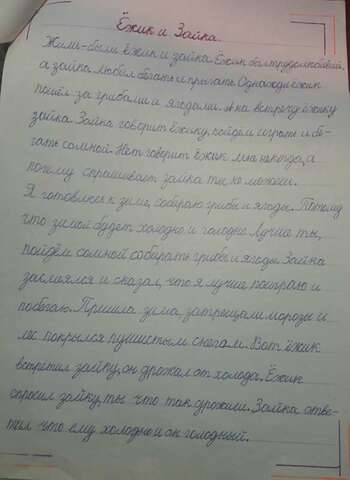 Ёжик и Зайка.
Жили-были ёжик и зайка. Ёжик был трудолюбивый,
а зайка любил бегать и прыгать. Однажды ёжик
пошёл за грибами и ягодами. А на встречу ёжику
зайка. Зайка говорит ёжику, пойдём играть и бе-
гать со мной. Нет говорит ёжик мне некогда, а
почему спрашивает зайка ты не можешь.
Я готовлюсь к зиме, собираю грибы и ягоды. Потому
что зимой будет холодно и голодно. Лучше ты,
пойдём со мной собирать грибы и ягоды. Зайка
засмеялся и сказал, что я лучше поиграю и
побегаю. Пришла зима, затрещали морозы и
лес покрылся пушистым снегом. Вот ёжик
встретил зайку, он дрожал от холода. Ёжик
спросил зайку, ты что так дрожишь. Зайка отве-
тил что ему холодно и он голодный.